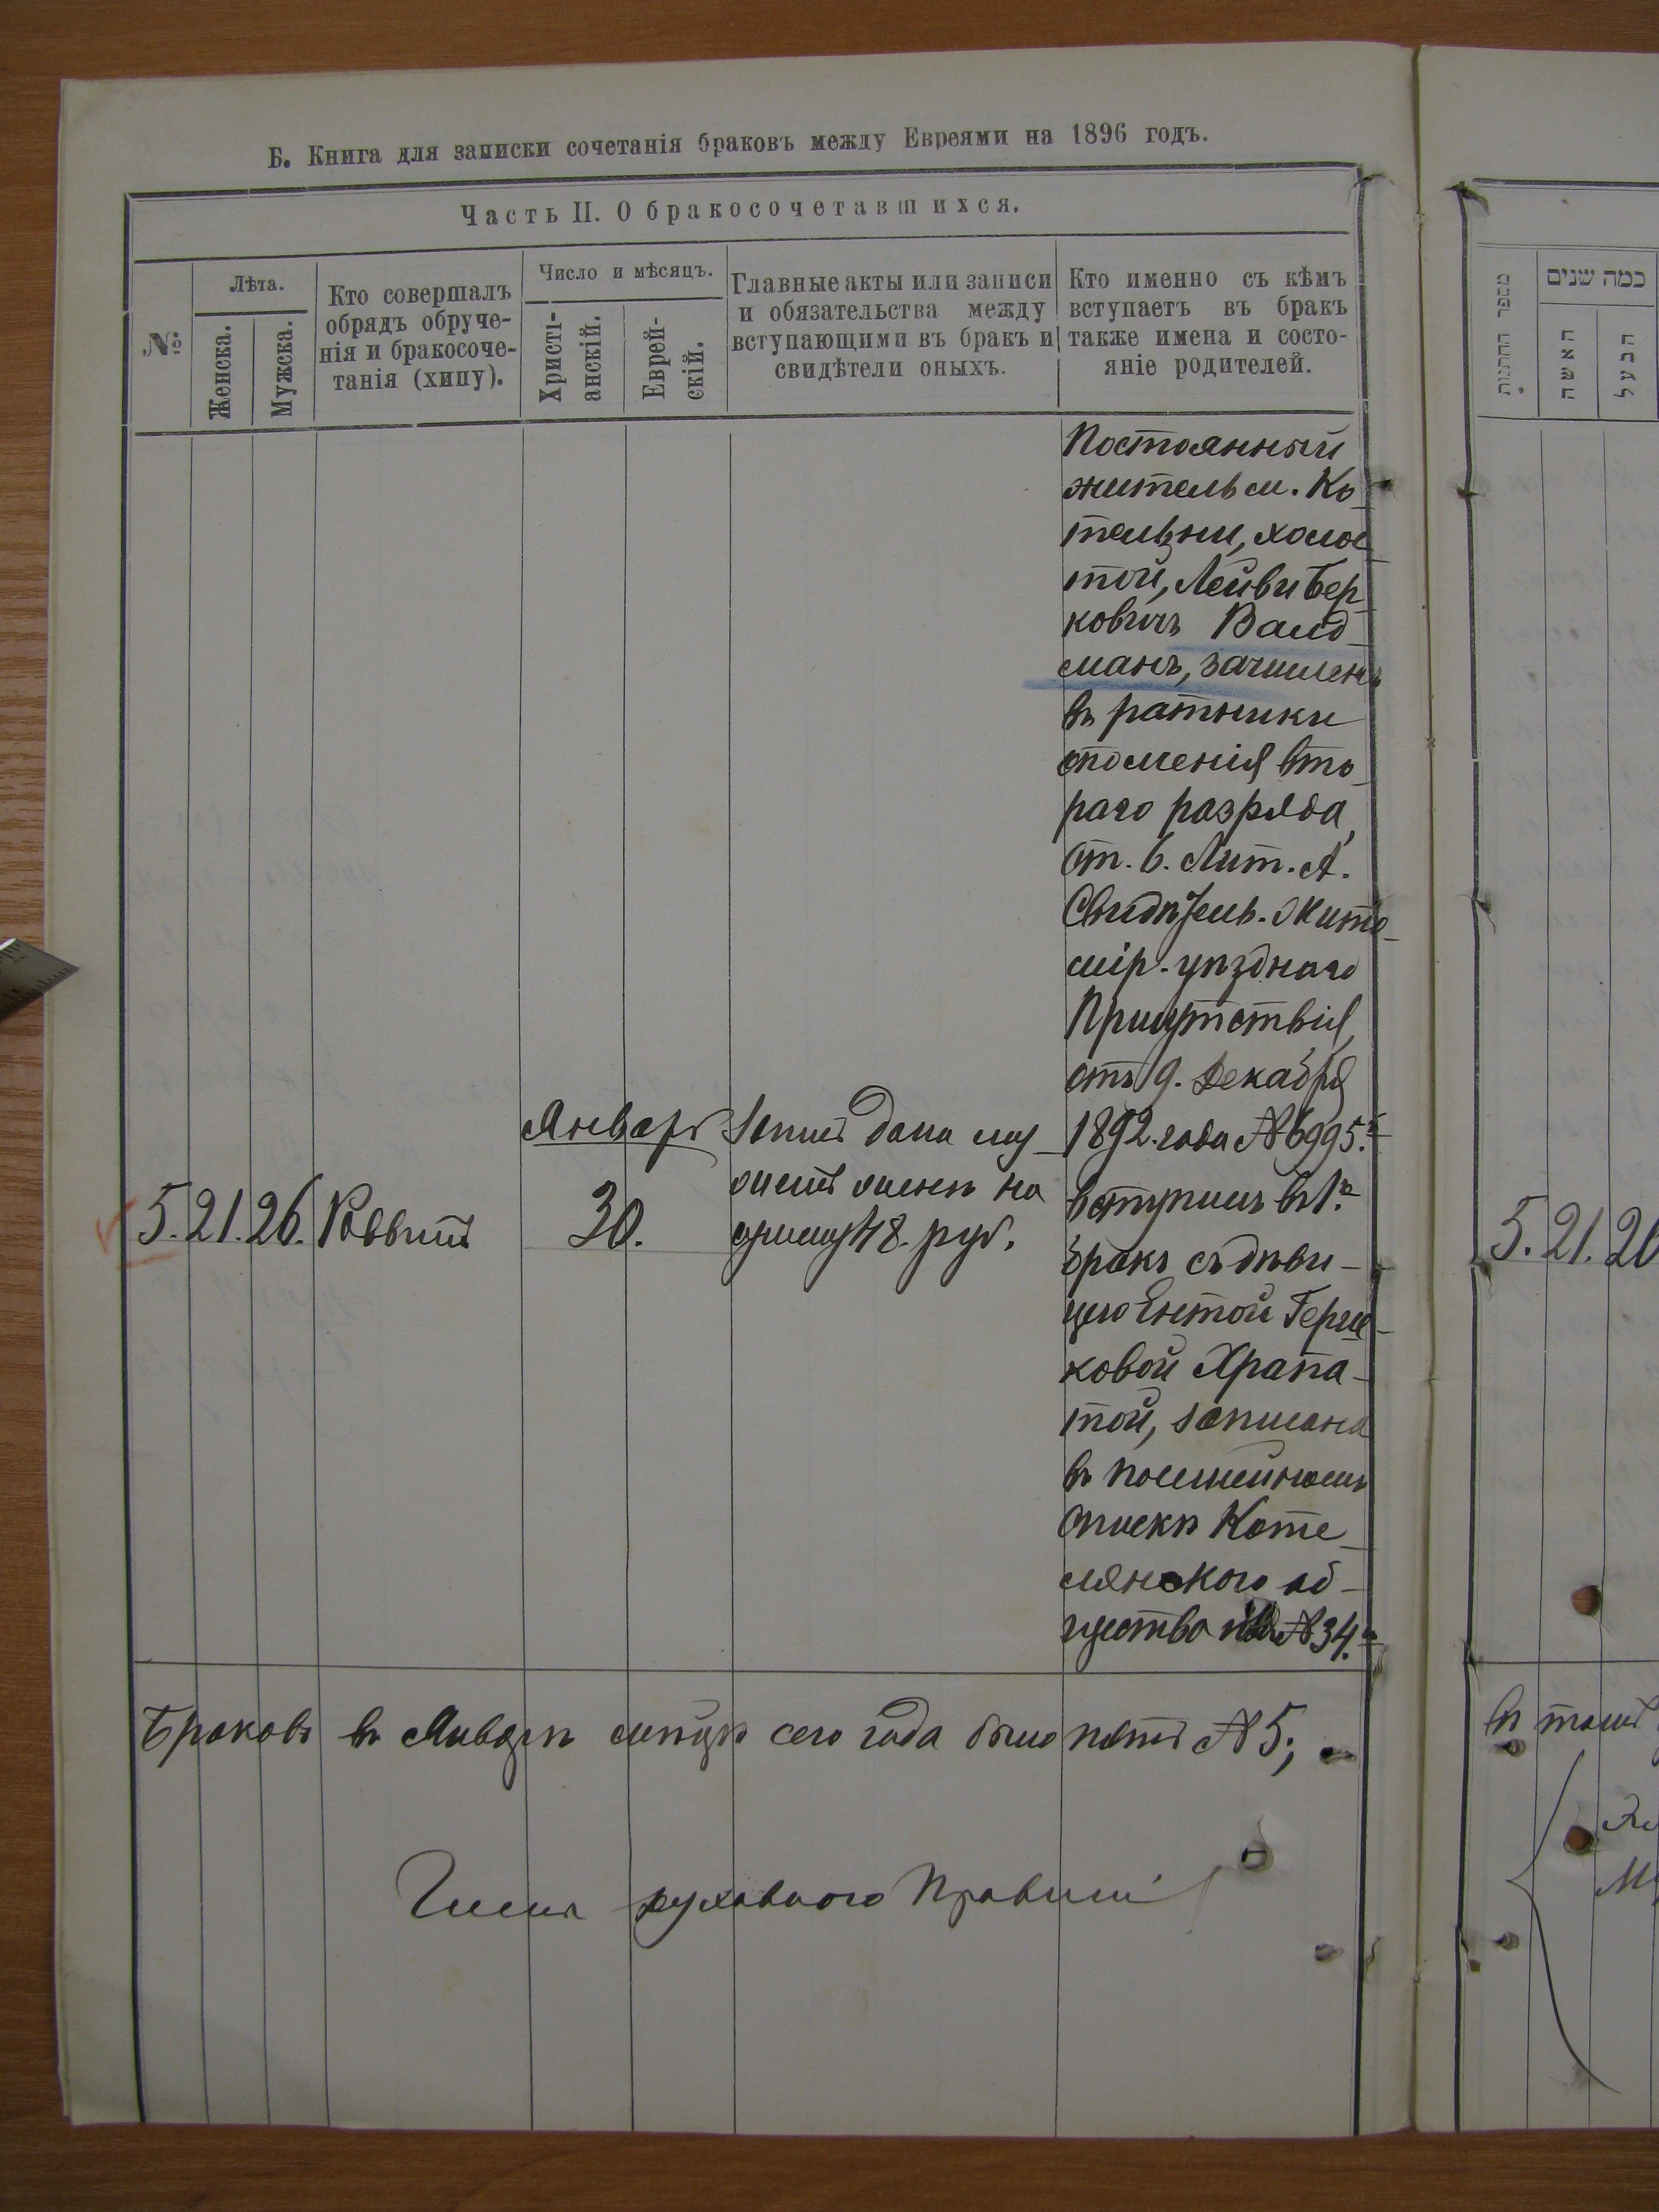 Б. Книга для записки сочетанія браковъ между Евреями на 1896 годъ.
Часть II. О бракосочетавшихся.
№
Лѣта.
Женска.
Мужска.
Кто совершалъ
обрядъ обруче-
нія и бракосоче-
танія (хипу).
Число и мѣсяцъ.
Христі-
анскій.
Еврей-
скій.
Главные акты или записи
и обязательства между
вступающими въ бракъ и
свидѣтели оныхъ.
Кто именно съ кѣмъ
вступаетъ въ бракъ
также имена и состо-
яніе родителей.
Постоянный
житель м. Ко
тельни, холос
той, Лейви Бер
ковичъ Валд
манъ, зачисленъ
въ ратники
ополченія вто
раго разряда,
Ст. 6. Лит. А.
Свидѣтель. Жито
мір. уѣзднаго
Присутствія,
отъ 9. Декабря
1892. года № 6995.
вступилъ въ 1й
бракъ съ дѣви-
цею Ентой Герш-
ковой Храпа-
той, записана
въ посемейномъ
списки Коте
лянского об-
щества № 34.
Январь
5. 21. 26. Раввинъ
30.
Запись дана му
жемъ женѣ на
сумму 48. руб.
Браковъ въ Январѣ мѣсяцѣ сего года было пять № 5;
Члены духовного Правлені
מספר החתונות
כמה שנים
האשה
הבעל
5. 21. 26
въ томъ